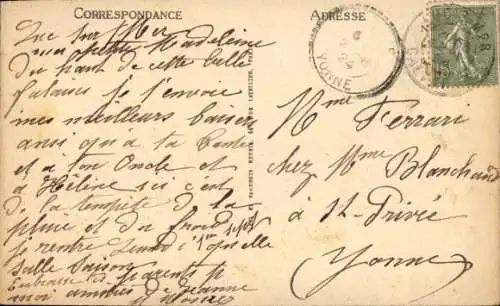 CORRESPONDANCE
Luc sur Mer
ma petite Madeleine
Du haut de cette belle
falaise je t'envoie
mes meilleurs baisers
ainsi qu'à ta Tante
et à ton Oncle et
à Hélène ici c'est
de la tempête de la
pluie et du froid
je rentre Lundi 1er sept
quelle
sale saison
Embrasse tes parents pr
moi amitiés de Jeanne
ADRESSE
YONNE
Mme Ferrari
chez Mme Blanchard
à St-Privé
Yonne